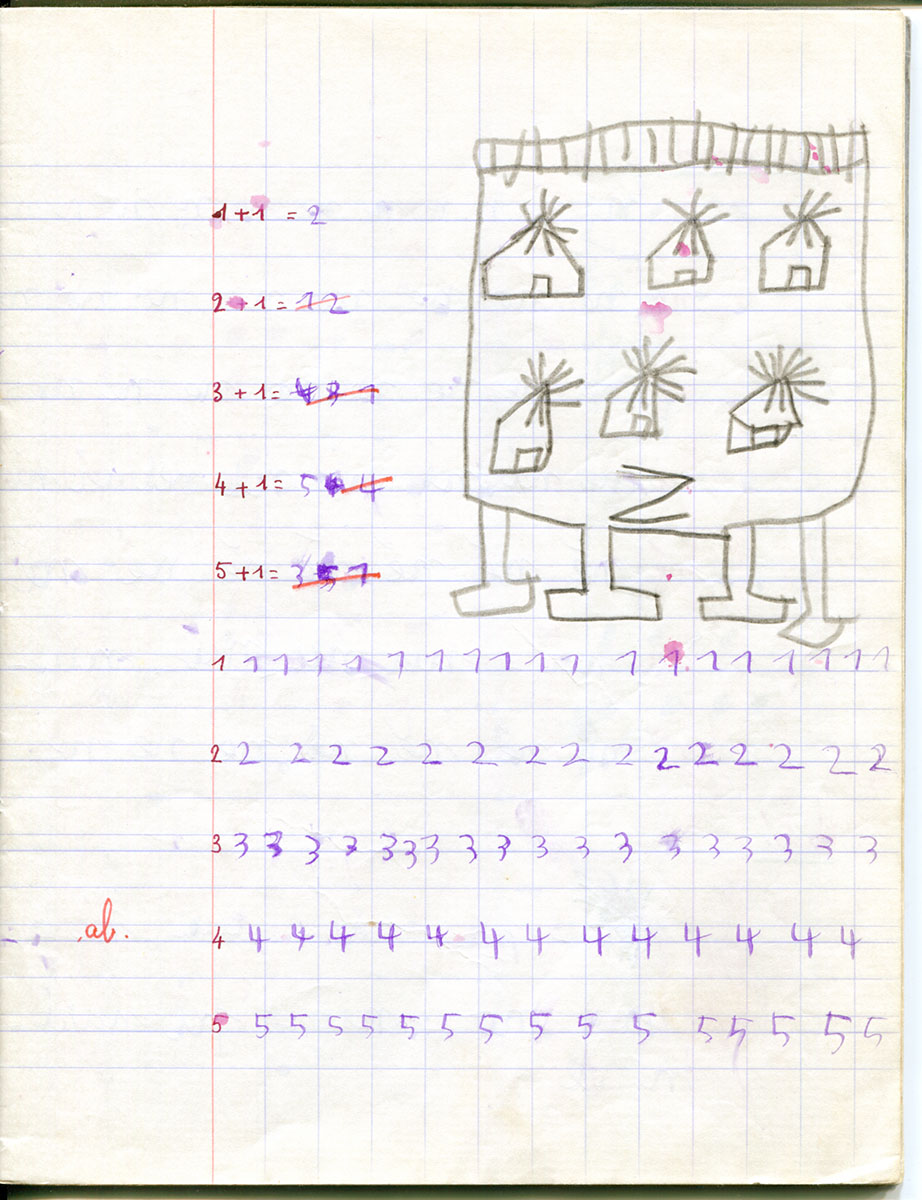 1+1 = 2
2+1= 12
3+1=
4+1= 5 4
5+1= 3 1
1 1 1 1 1 1 1 1 1 1 1 1 1 1 1 1 1 1 1
2 2 2 2 2 2 2 2 2 2 2 2 2 2 2 2
3 3 3 3 3 3 3 3 3 3 3 3 3 3 3 3 3 3 3
ab.
4 4 4 4 4 4 4 4 4 4 4 4 4 4
5 5 5 5 5 5 5 5 5 5 5 5 5 5 5 5